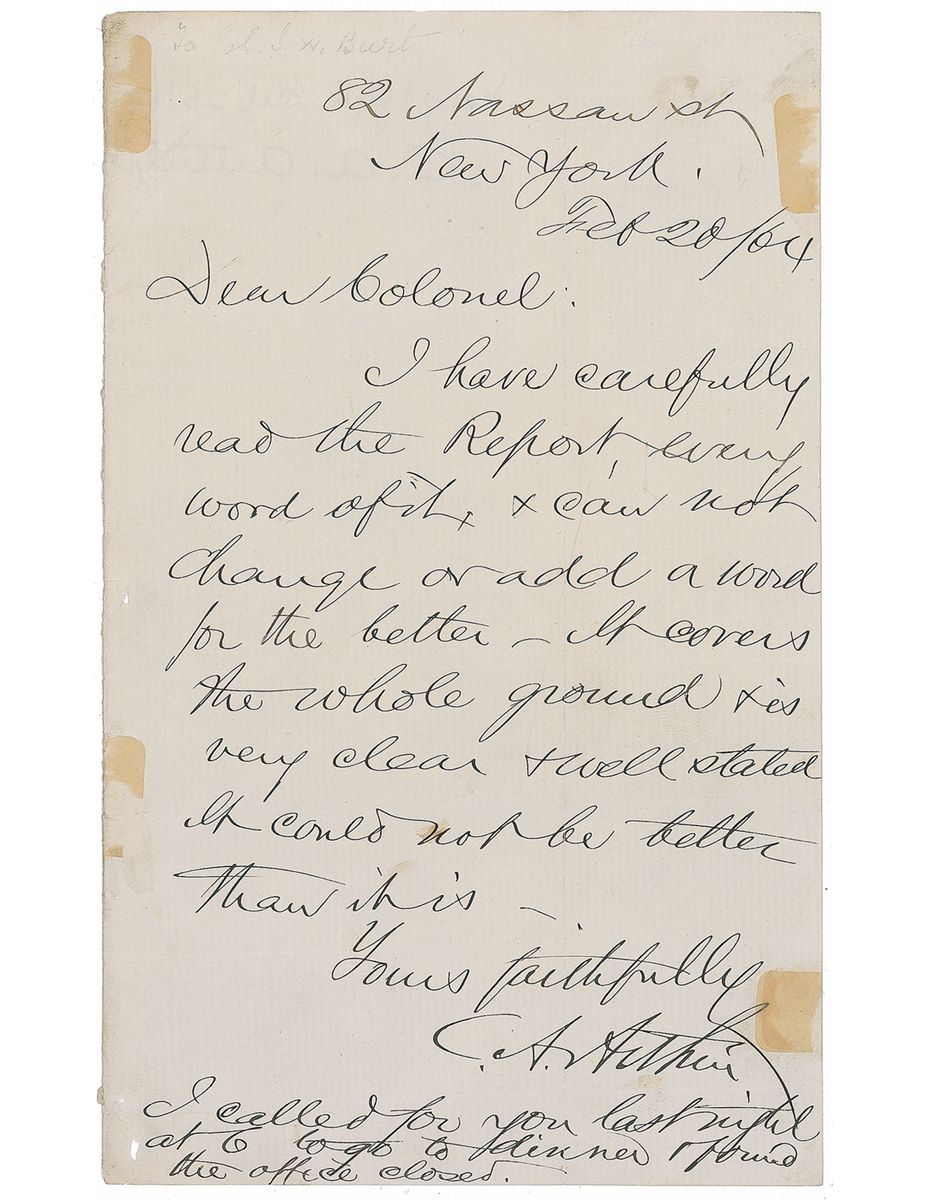 To Col. S. W. Burt
82 Nassau st
New York.
Feb 20/64
Dear Colonel:
I have carefully
read the Report, every
word of it, & can not
change or add a word
for the better – It covers
the whole ground & is
very clear & well stated
It could not be better
than it is –
Yours faithfully
C. A. Arthur
I called for you last night
at 6 to go to dinner & found
the office closed.